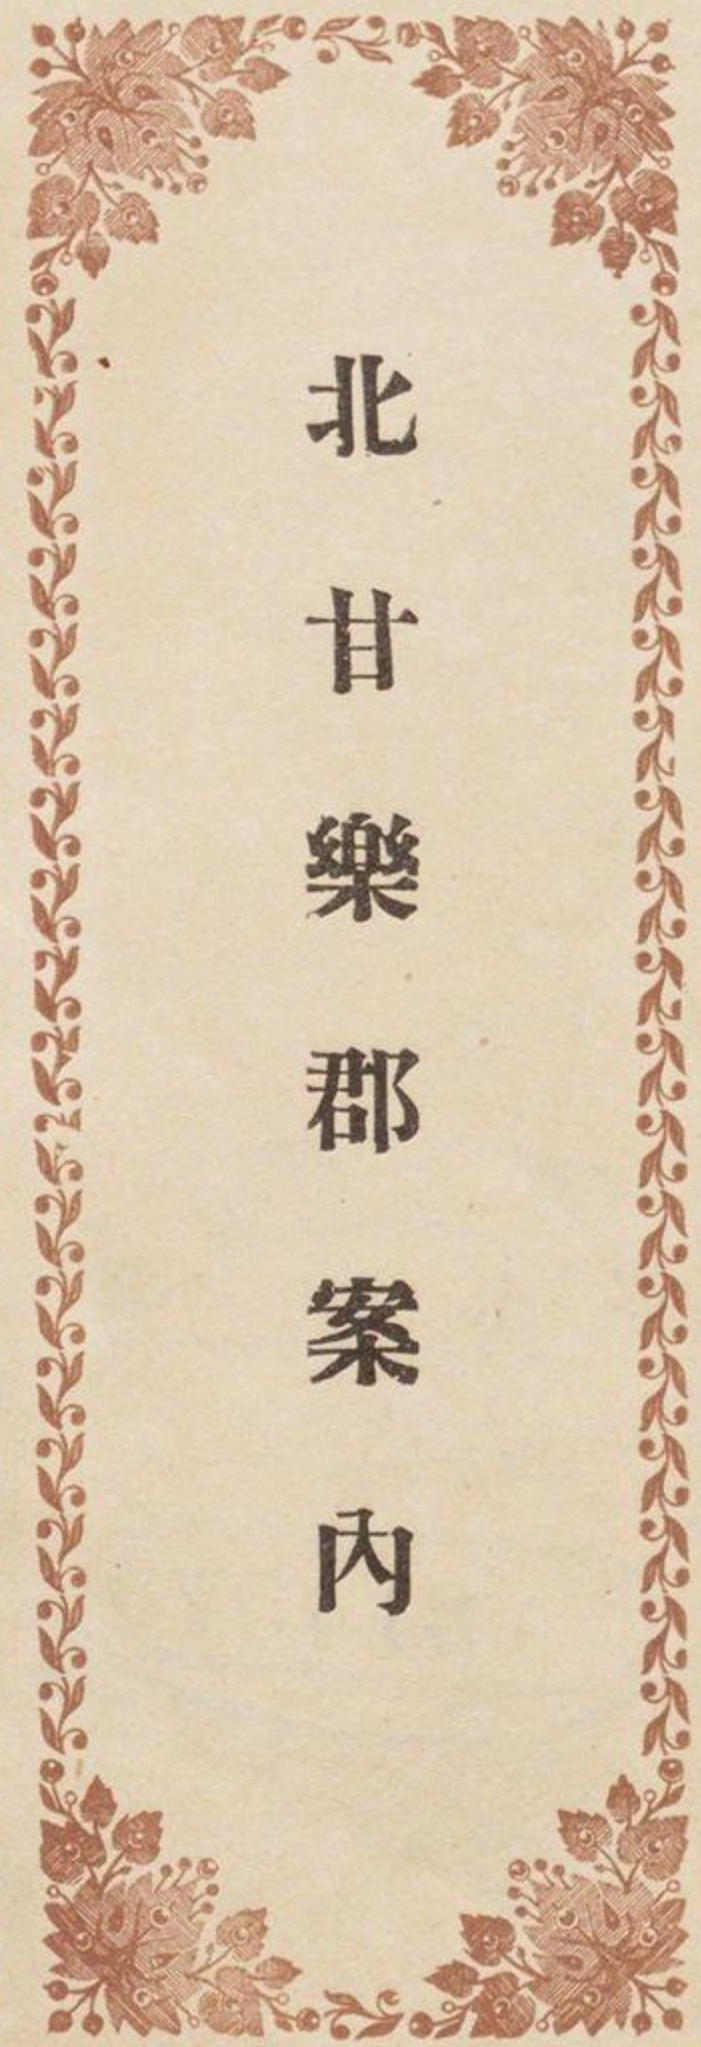 北甘樂郡案內